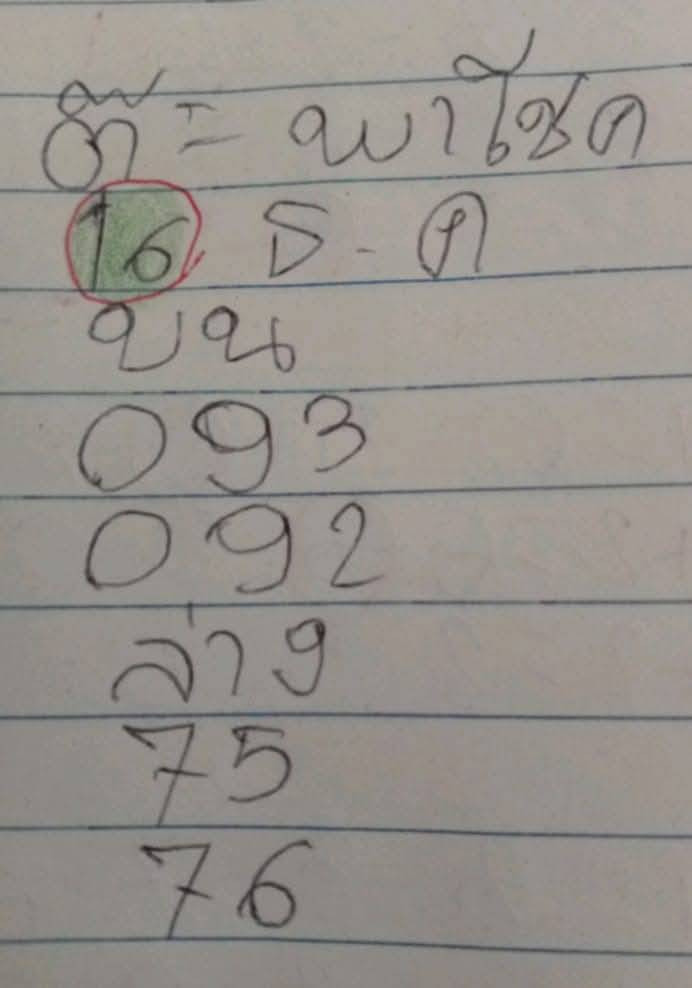 ตั๊ = พาโชค
16 ธ.ค
บน
093
092
ล่าง
75
76